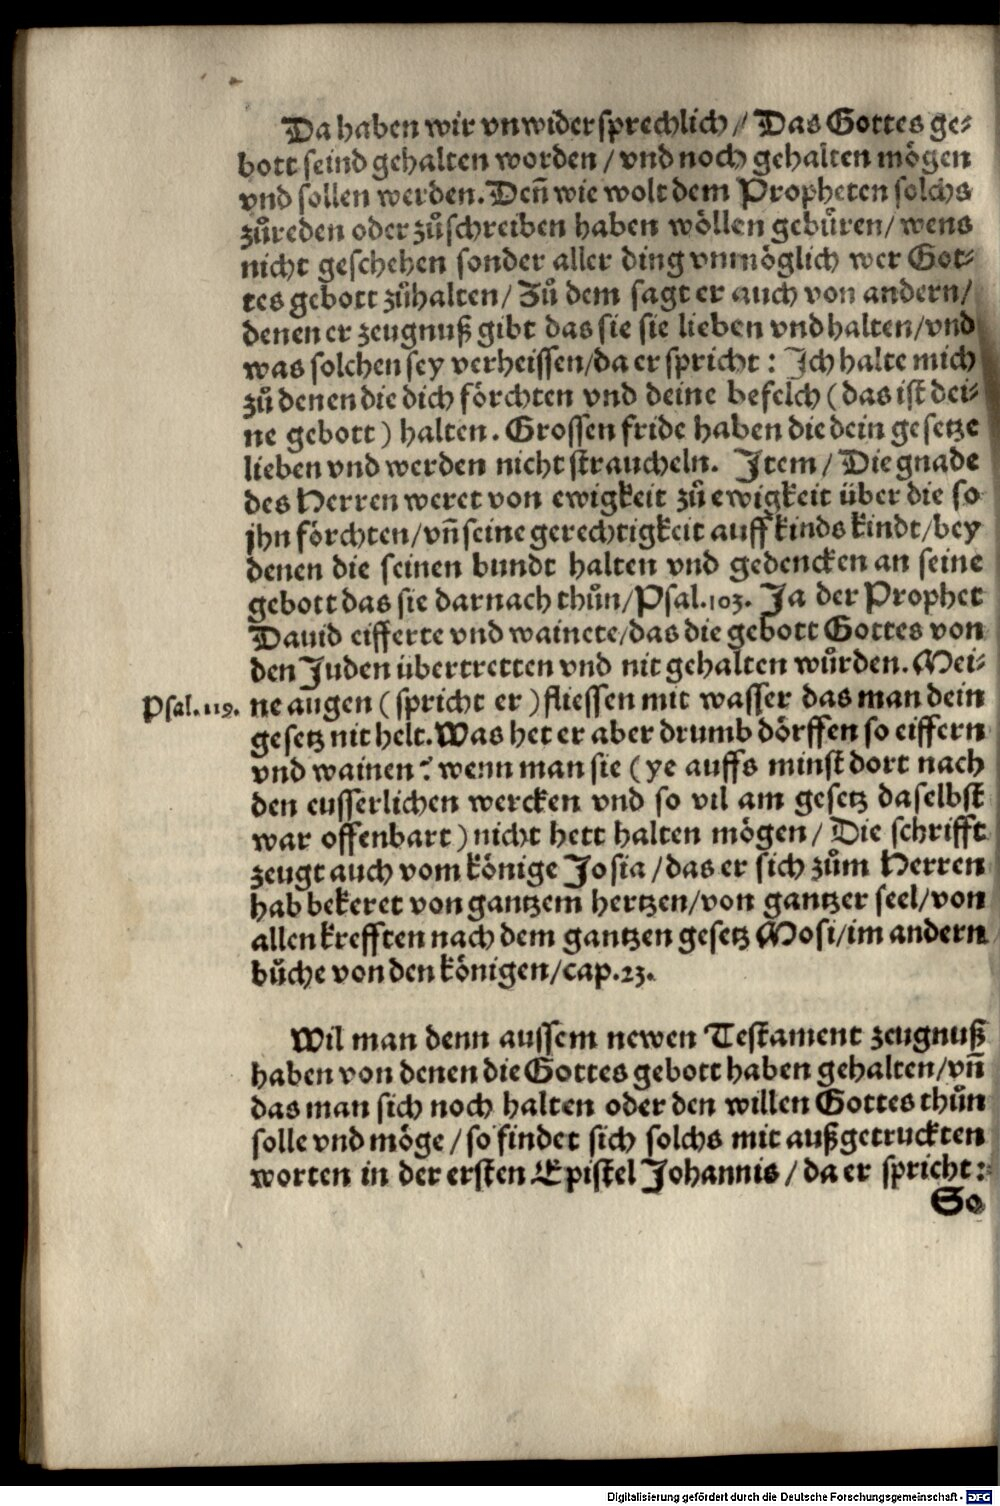 Da haben wir vnwidersprechlich / Das Gottes ge⸗
bott seind gehalten worden / vnd noch gehalten mögen
vnd sollen werden. Deñ wie wolt dem Propheten solchs
zůreden oder zůschreiben haben wöllen gebüren / wens
nicht geschehen sonder aller ding vnmöglich wer Got⸗
tes gebott zůhalten / Zů dem sagt er auch von andern /
denen er zeugnuß gibt das sie sie lieben vnd halten / vnd
was solchen sey verheissen / da er spricht : Ich halte mich
zů denen die dich förchten vnd deine befelch ( das ist dei⸗
ne gebott ) halten. Grossen fride haben die dein gesetze
lieben vnd werden nicht straucheln. Item / Die gnade
des Herren weret von ewigkeit zů ewigkeit über die so
jhn förchten / vñ seine gerechtigkeit auff kinds kindt / bey
denen die seinen bundt halten vnd gedencken an seine
gebott das sie darnach thůn / Psal.103. Ja der Prophet
Dauid eifferte vnd wainete / das die gebott Gottes von
den Juden übertretten vnd nit gehalten wůrden. Mei⸗
Psal.119. ne augen ( spricht er ) fliessen mit wasser das man dein
gesetz nit helt. Was het er aber drumb dörffen so eiffern
vnd wainen ? wenn man sie ( ye auffs minst dort nach
den eusserlichen wercken vnd so vil am gesetz daselbst
war offenbart ) nicht hett halten mögen / Die schrifft
zeugt auch vom könige Josia / das er sich zům Herren
hab bekeret von gantzem hertzen / von gantzer seel / von
allen krefften nach dem gantzen gesetz Mosi / im andern
bůche von den königen / cap.23.
Wil man denn aussem newen Testament zeugnuß
haben von denen die Gottes gebott haben gehalten / vñ
das man sich noch halten oder den willen Gottes thůn
solle vnd möge / so findet sich solchs mit außgetruckten
worten in der ersten Epistel Johannis / da er spricht :
So
Digitalisierung gefördert durch die Deutsche Forschungsgemeinschaft - DFG